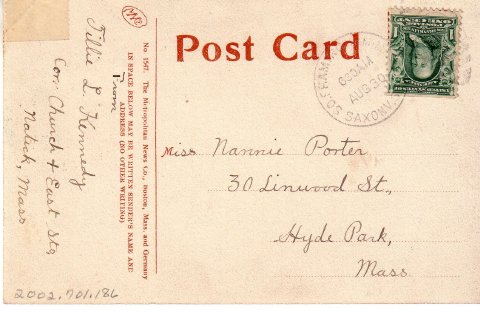 Post Card
No. 1547. The Metropolitan News Co., Boston, Mass. and Germany
IN SPACE BELOW MAY BE WRITTEN SENDER'S NAME AND
ADDRESS (NO OTHER WRITING)
From
Tillie L. Kennedy
Cor. Church & East Sts
Natick, Mass
Miss Nannie Porter
30 Linwood St.,
Hyde Park,
Mass.
SO. FRAM
SAXONV
630 AM
AUG 30
1
2002.701.186